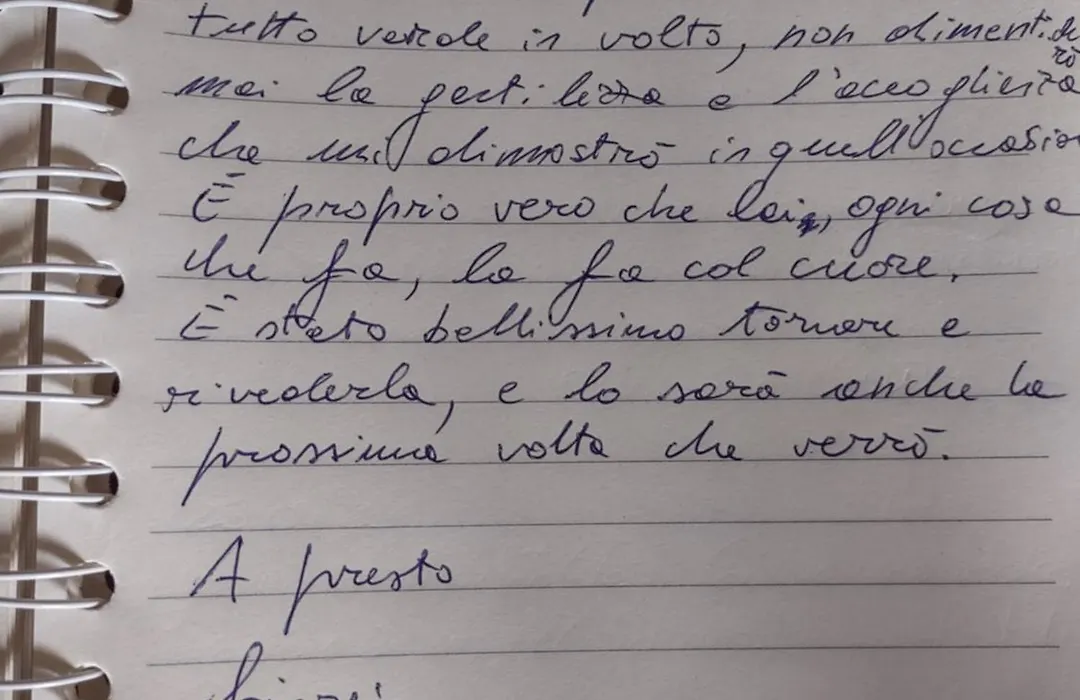 tutto verde in volto, non dimenticherò
mai la gentilezza e l'accoglienza
che mi dimostrò in quell'occasion
È proprio vero che lei, ogni cosa
che fa, la fa col cuore.
È stato bellissimo tornare e
rivederla, e lo sarà anche la
prossima volta che verrò.
A presto